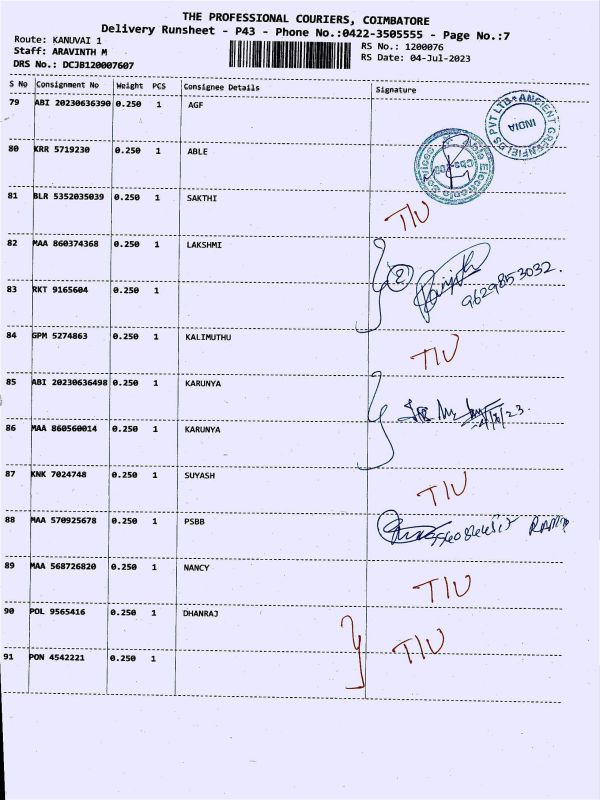 THE PROFESSIONAL COURIERS, COIMBATORE
Delivery Runsheet - P43 - Phone No.:0422-3505555 - Page No.:7
Route: KANUVAI 1
RS No.: 1200076
Staff: ARAVINTH M
RS Date: 04-Jul-2023
DRS No.: DCJB120007607
S No Consignment No Weight PCS Consignee Details Signature
79 ABI 20230636390 0.250 1 AGF
PVT LTD ANCIENT GREENFIELDS INDIA
80 KRR 5719230 0.250 1 ABLE
81 BLR 5352035039 0.250 1 SAKTHI T/U
82 MAA 860374368 0.250 1 LAKSHMI
2 9629853032.
83 RKT 9165604 0.250 1
84 GPM 5274863 0.250 1 KALIMUTHU T/U
85 ABI 20230636498 0.250 1 KARUNYA
86 MAA 860560014 0.250 1 KARUNYA
87 KNK 7024748 0.250 1 SUYASH T/U
88 MAA 570925678 0.250 1 PSBB
89 MAA 568726820 0.250 1 NANCY T/U
90 POL 9565416 0.250 1 DHANRAJ T/U
91 PON 4542221 0.250 1